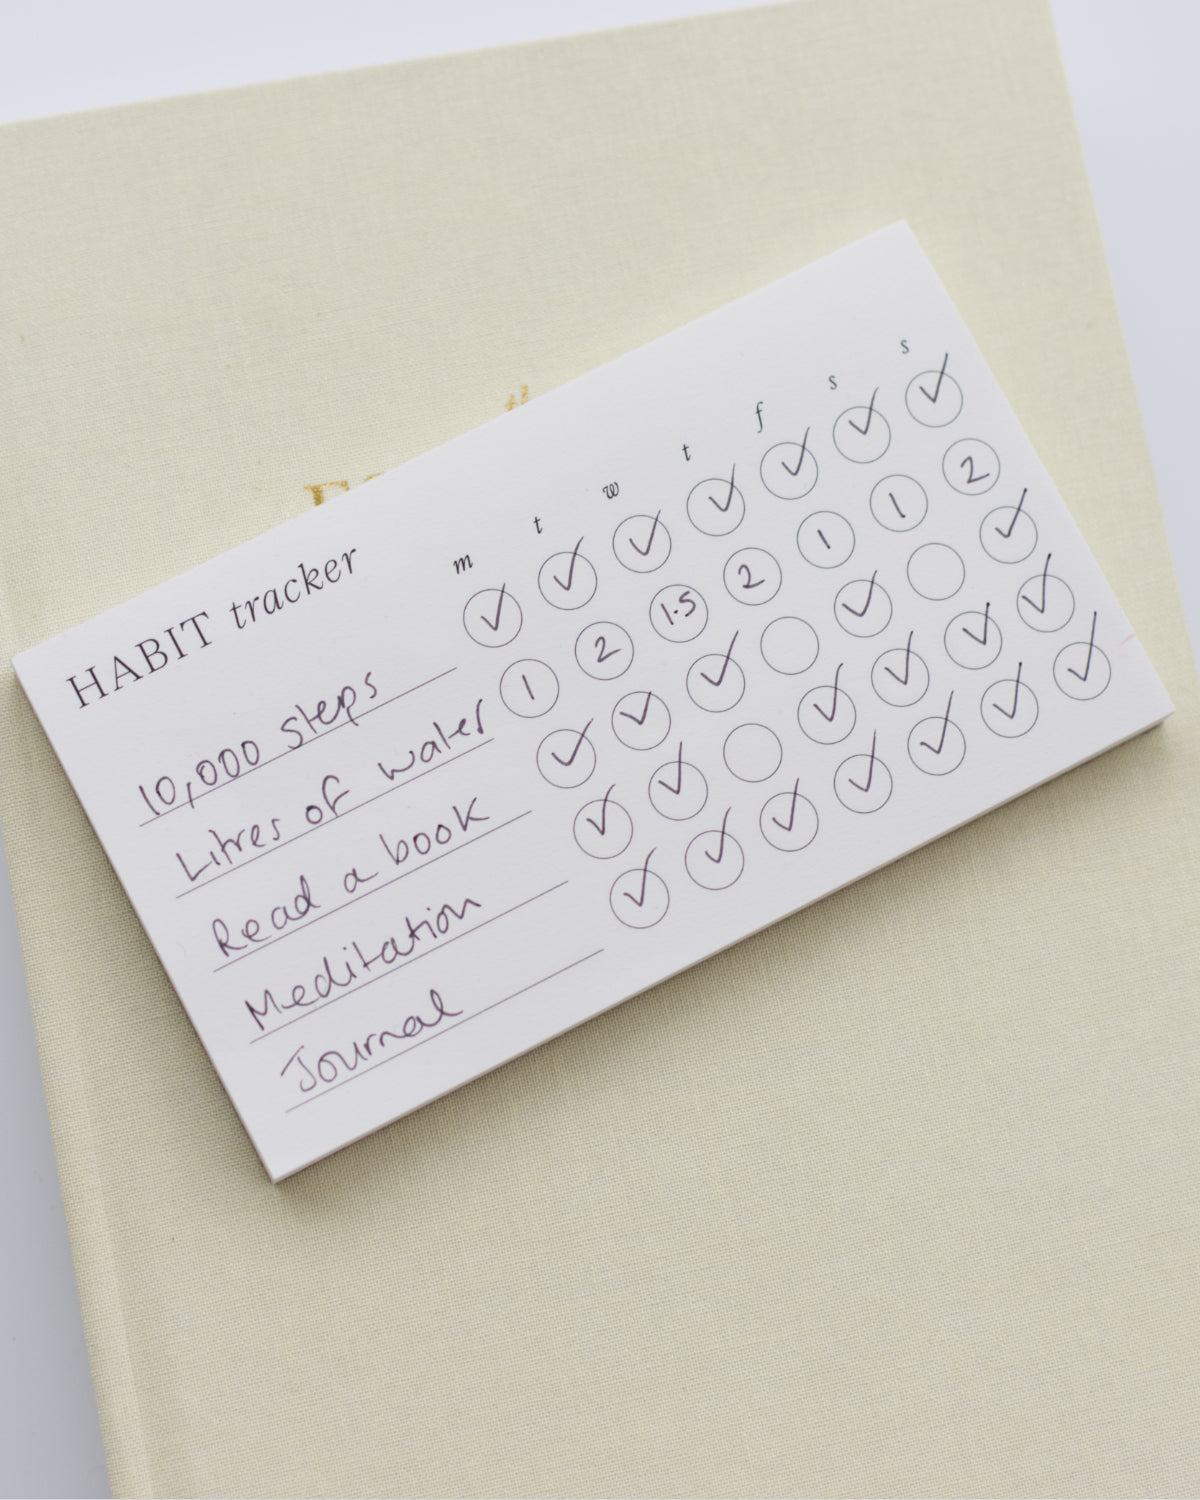 HABIT tracker
m t w t f s s
10,000 steps ✓ ✓ ✓ ✓ ✓ ✓ ✓
Litres of water 1 2 1.5 2 1 1 2
Read a book ✓ ✓ ✓ ✓ ✓
Meditation ✓ ✓ ✓ ✓ ✓ ✓
Journal ✓ ✓ ✓ ✓ ✓ ✓ ✓